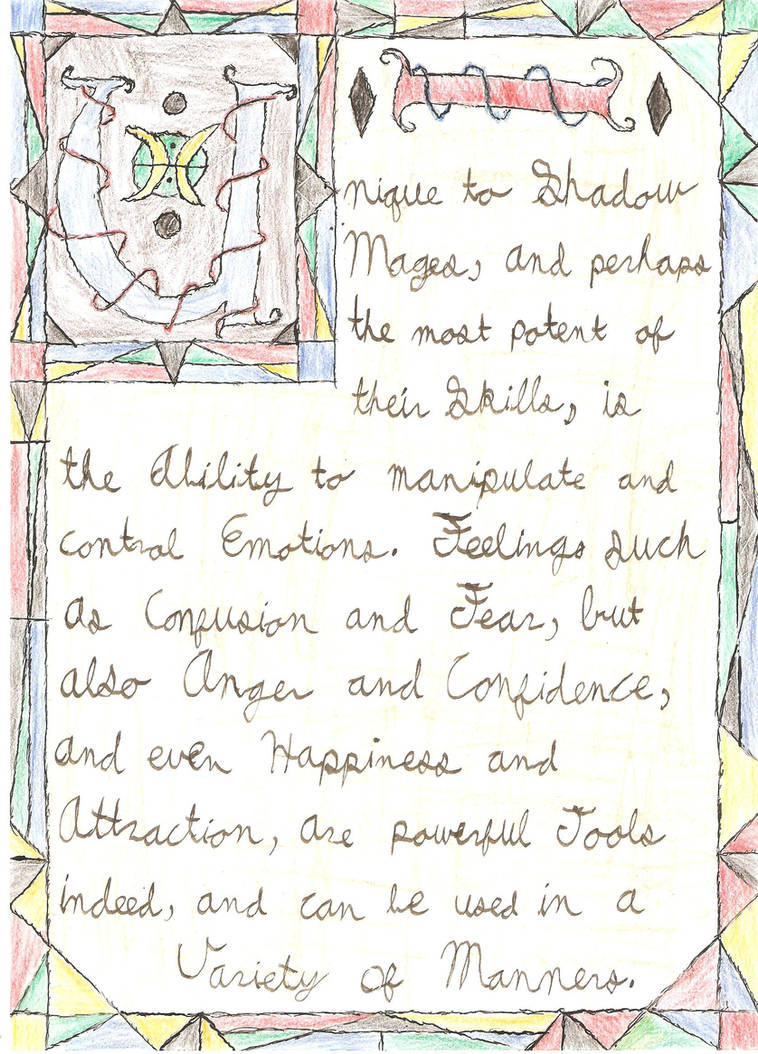 Unique to Shadow
Mages, and perhaps
the most potent of
their Skills, is
the Ability to manipulate and
control Emotions. Feelings such
as Confusion and Fear, but
also Anger and Confidence,
and even Happiness and
Attraction, are powerful Tools
indeed, and can be used in a
Variety of Manners.